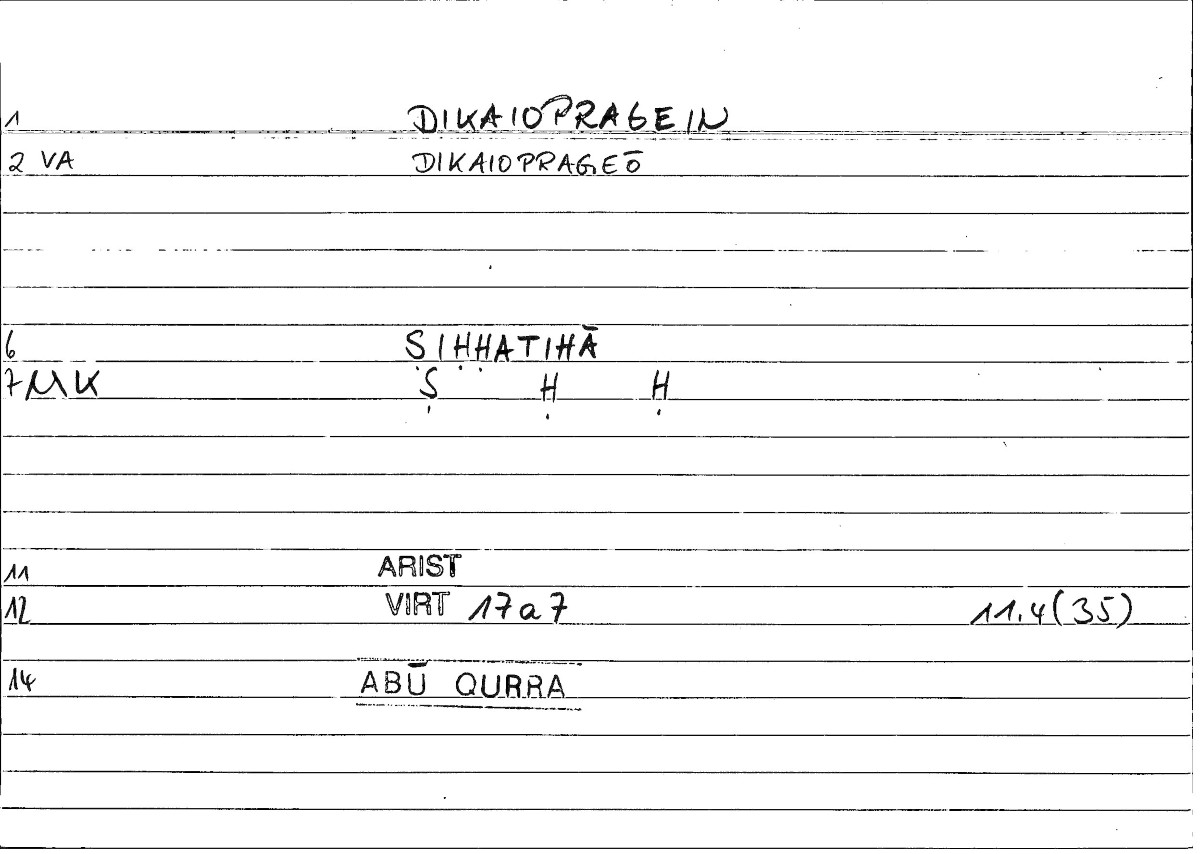 1 DIKAIOPRAGEIN
2 VA DIKAIOPRAGEŌ
6 ṢIḤḤATIHĀ
7 MK Ṣ Ḥ Ḥ
11 ARIST
12 VIRT 17a7 11.4(35)
14 ABŪ QURRA